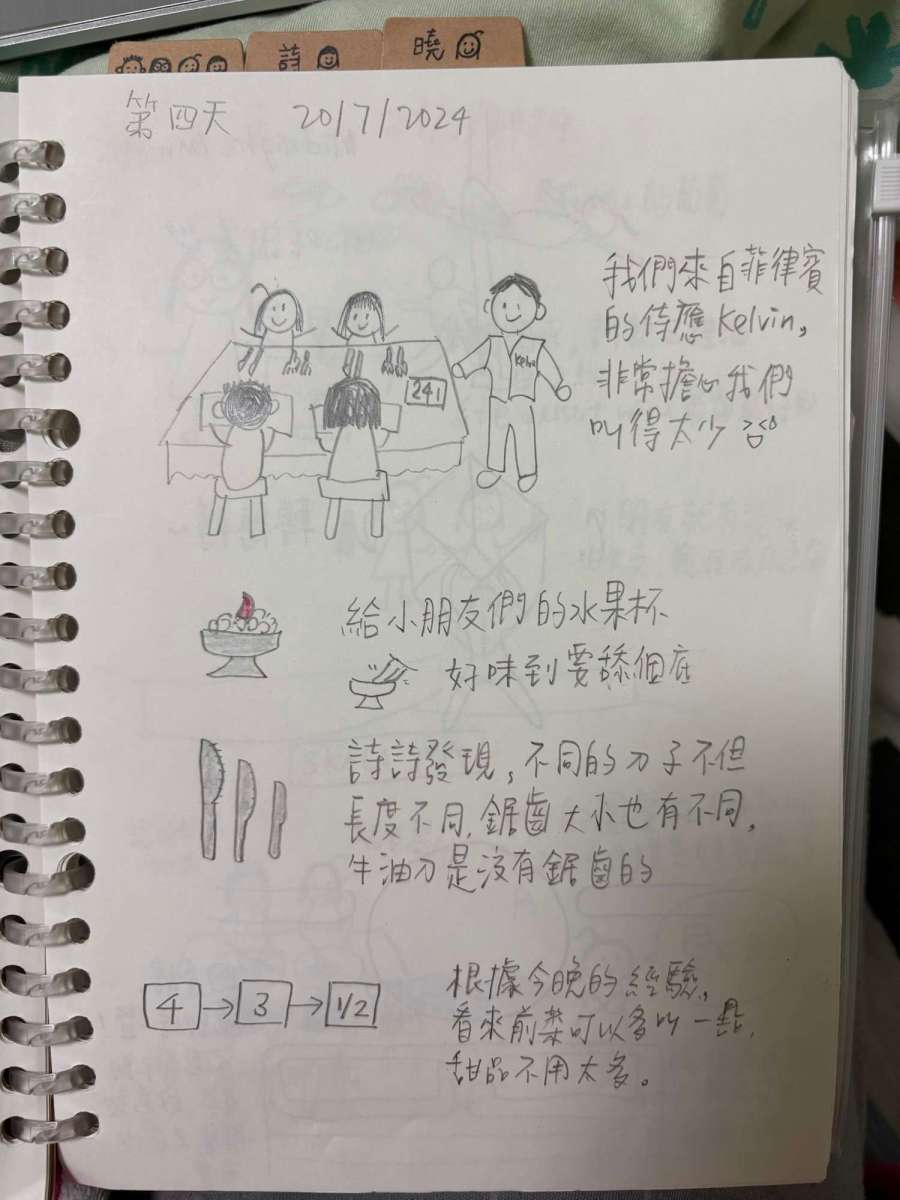 詩
曉
第四天 20/7/2024
我們來自菲律賓
的侍應 Kelvin,
非常擔心我們
叫得太少
241
給小朋友們的水果杯
好味到要舔個底
詩詩發現, 不同的刀子不但
長度不同, 鋸齒大小也有不同,
牛油刀是沒有鋸齒的
4 → 3 → 1/2
根據今晚的經驗,
看來前菜可以多叫一點,
甜品不用太多。